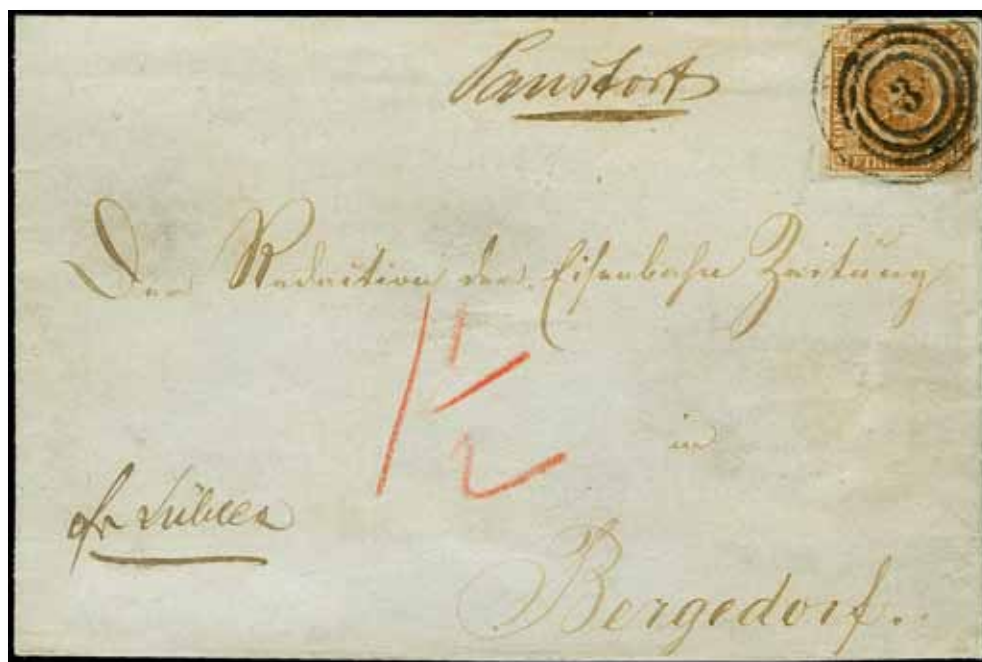 Panstorf
3
Der Redaction der Eisenbahn Zeitung
1 1/2
in
fr Lübeck
Bergedorf.